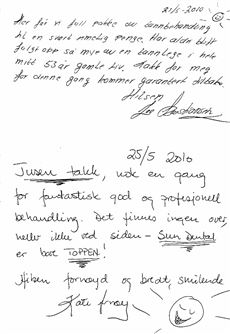 21/5-2010
Her får vi full pakke av tannbehandling
til en svært rimelig penge. Har aldri blitt
fulgt opp så mye av en tannlege i hele
mitt 53 år gamle liv. Takk for meg
for denne gang kommer garantert tilbake
Hilsen
25/5 2010
Tusen takk, nok en gang
for fantastisk god og profesjonell
behandling. Det finnes ingen over,
heller ikke ved siden - Sun Dental
er best TOPPEN!
Hilsen fornøyd og bredt smilende
Kate